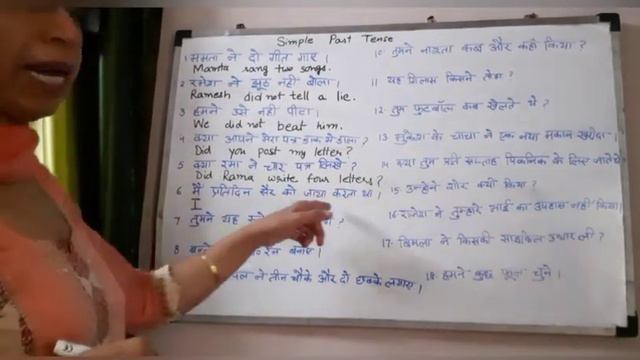 Simple Past Tense
1 ममता ने दो गीत गाए।
Mamta sang two songs.
2 रमेश ने झूठ नहीं बोला।
Ramesh did not tell a lie.
3 हमने उसे नहीं पीटा।
We did not beat him.
4 क्या आपने मेरा पत्र डाक में डाला?
Did you post my letter?
5 क्या रमा ने चार पत्र लिखे?
Did Rama write four letters?
6 मैं प्रतिदिन सैर को जाया करता था।
I
7 तुमने यह ?
8 रन बनाए।
ने तीन चौके और दो छक्के लगाए।
10. तुमने नाश्ता कब और कहाँ किया?
11 यह गिलास किसने तोड़ा?
12 तुम फुटबॉल कब खेलते थे?
13 मुकेश के चाचा ने एक नया मकान खरीदा।
14 क्या तुम प्रति सप्ताह पिकनिक के लिए जाते थे
15 उन्होंने शोर क्यों किया?
16 राजेश ने तुम्हारे भाई का उपहास नहीं किया।
17. विमला ने किसकी साइकिल उधार ली?
18. हमने कुछ फूल चुने।